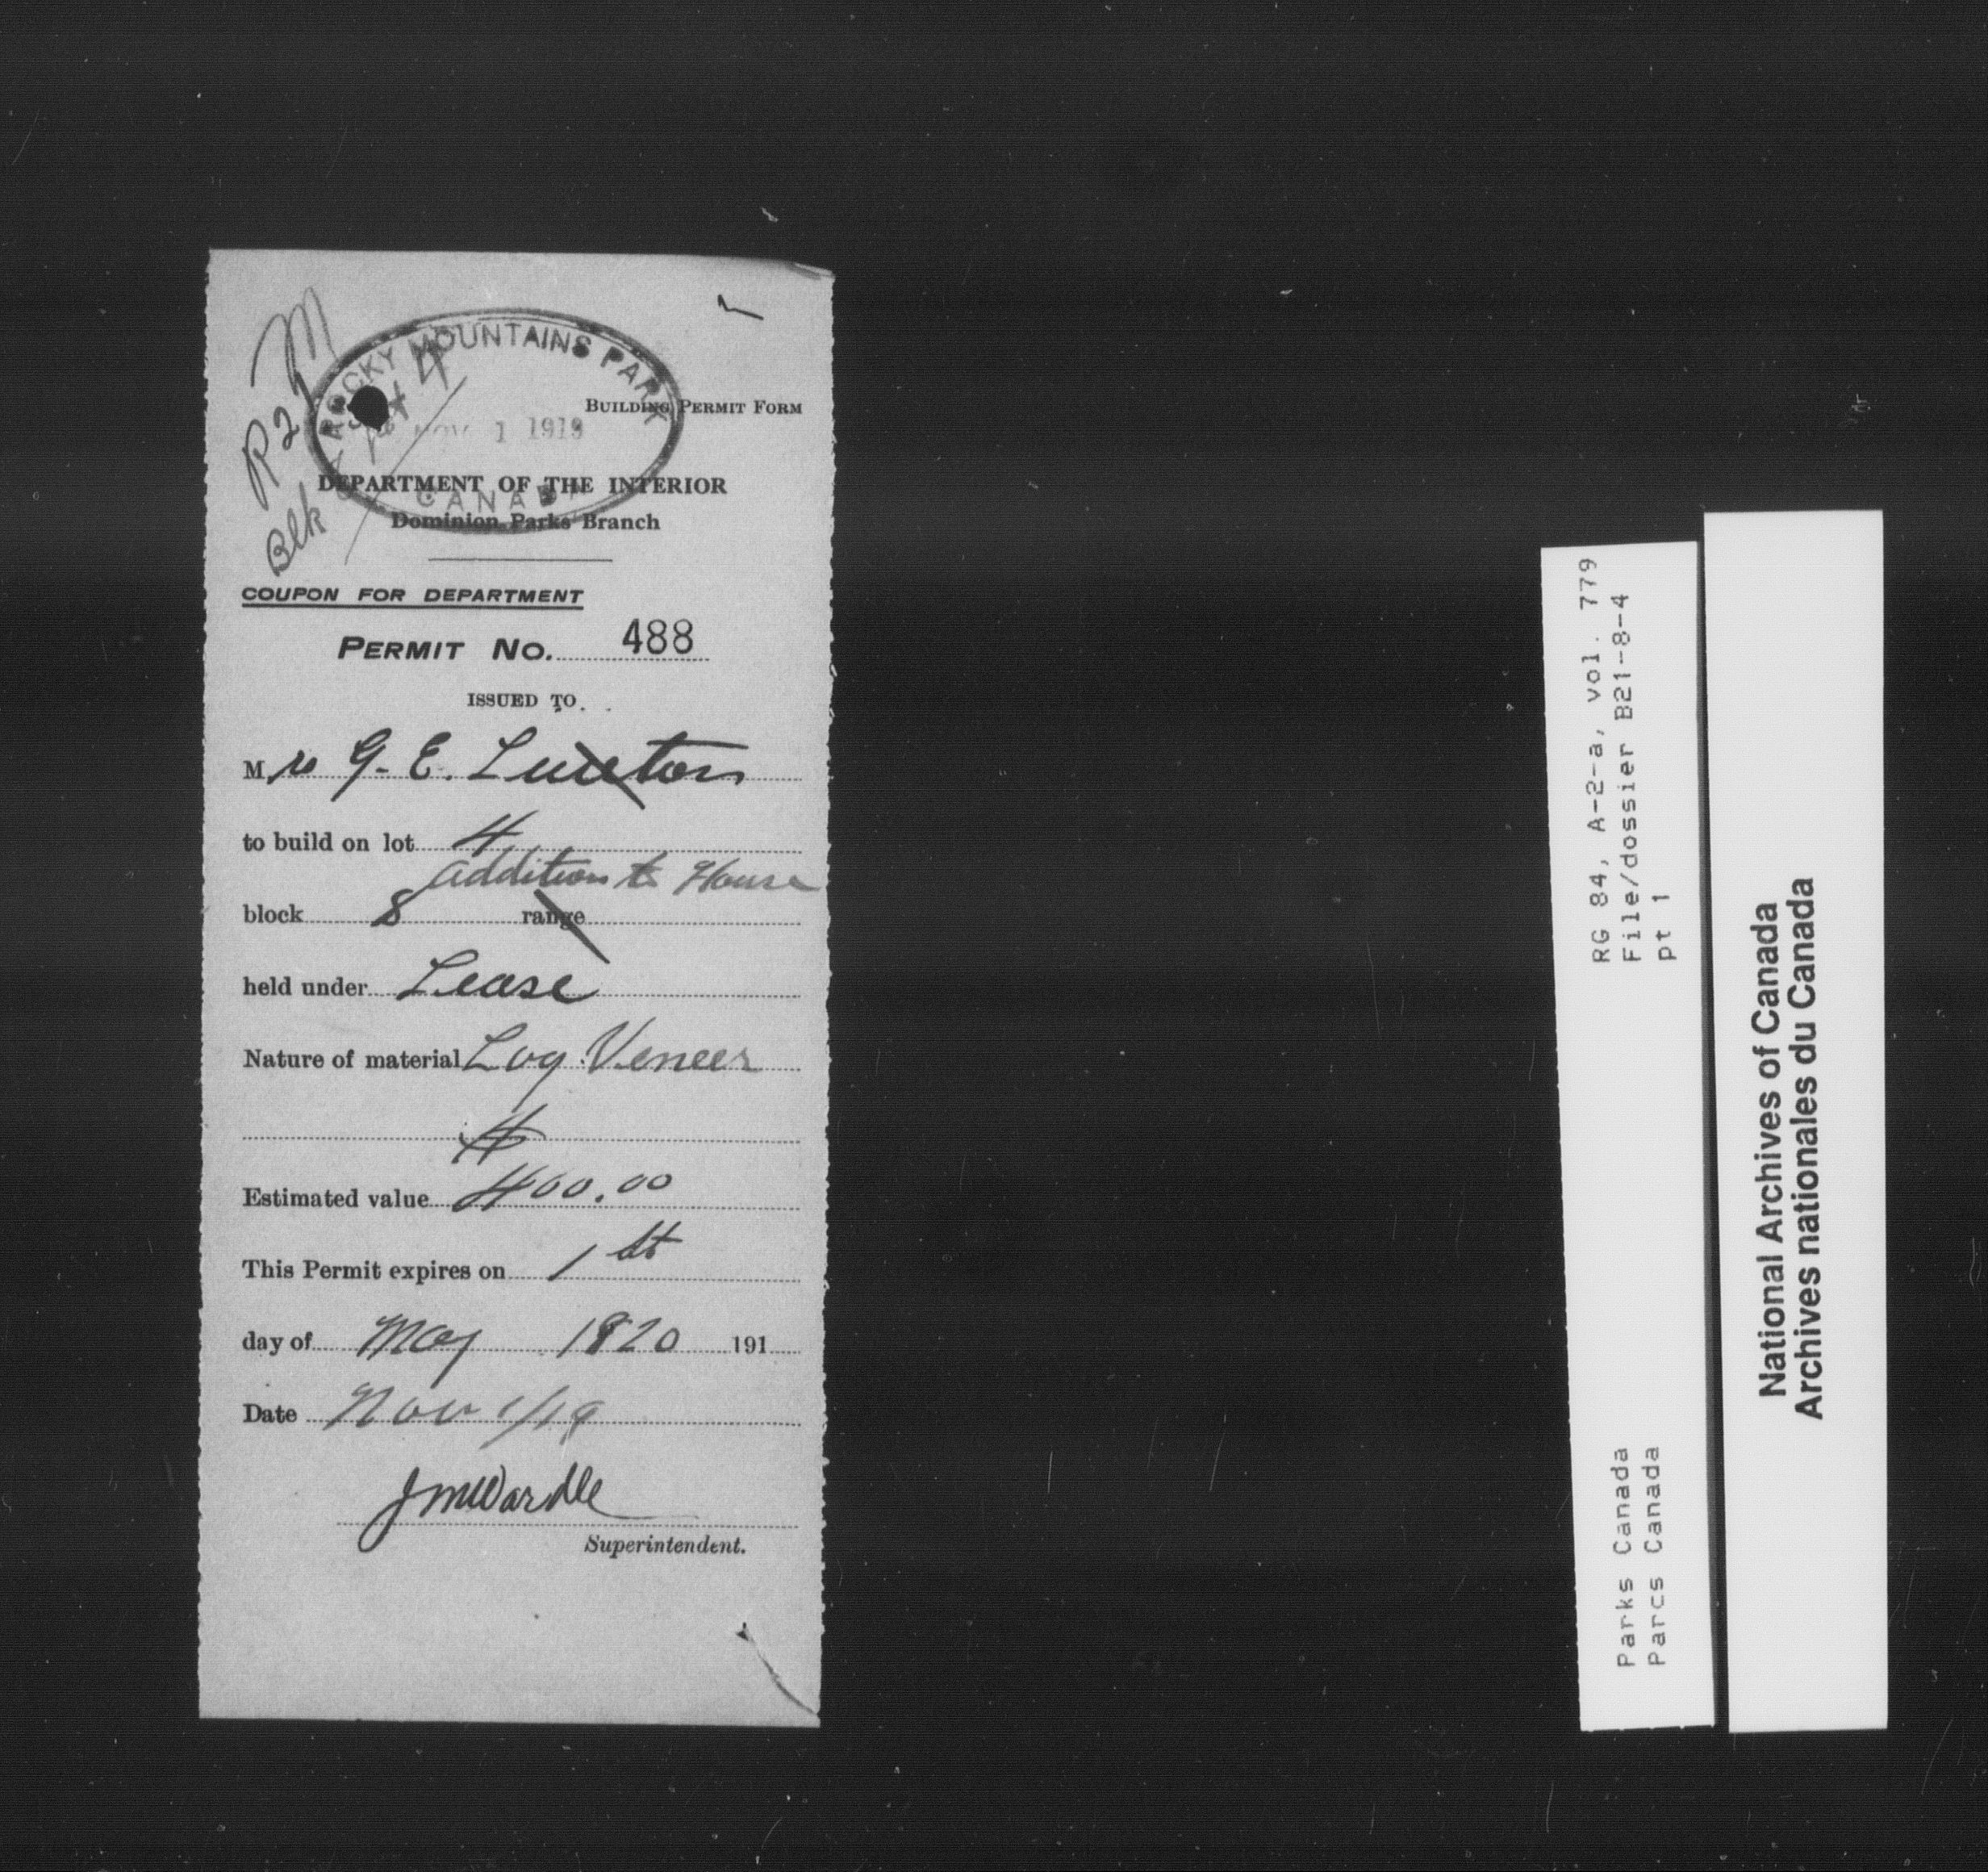 ROCKY MOUNTAINS PARK
NOV 1 1919
CANADA
Blk
BUILDING PERMIT FORM
DEPARTMENT OF THE INTERIOR
Dominion Parks Branch
COUPON FOR DEPARTMENT
PERMIT No. 488
ISSUED TO
Mr G. E. Luxton
to build on lot 4
addition to House
block 8 range
held under Lease
Nature of material Log Veneer
$
Estimated value 400.00
This Permit expires on 1st
day of May 1920 191
Date Nov 1/19
JMWardle
Superintendent.
RG 84, A-2-a, vol. 779
File/dossier B21-8-4
pt 1
Parks Canada
Parcs Canada
National Archives of Canada
Archives nationales du Canada